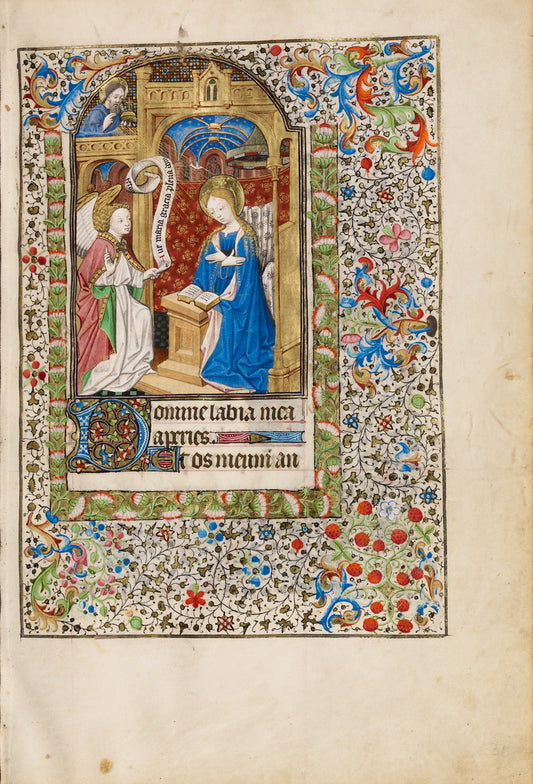 Aue maria gracia plena
Domine labia mea
aperies.
Et os meum an